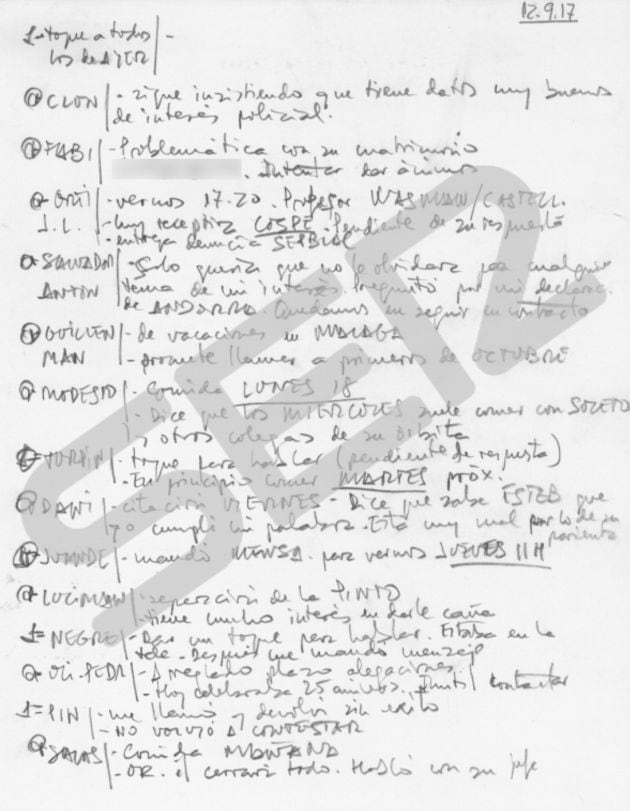 12.9.17
1- toque a todos
los de AYER
CLON - sigue insistiendo que tiene datos muy buenos
de interés policial.
FABI - Problemática con su matrimonio
. Intentar dar ánimos
ORTI - vernos 17.20. Profesor WASMAN/CASTELL.
J.L. - muy receptiva COSPE. Pendiente de su respuesta
- entrega denuncia SEPBLAC
SALVADOR - Solo quería que no le olvidara para cualquier
ANTON tema de mi interés. Preguntó por mi declarac.
de ANDORRA. Quedamos en seguir en contacto
GUILLEN - de vacaciones en MALAGA
MAN - promete llamar a primeros de OCTUBRE
MODESTO - Comida LUNES 18
- Dice que los MIERCOLES suele comer con SOLETO
y otros colegas de su órbita
- toque para hablar (pendiente de respuesta)
- En principio comer MARTES próx.
DANI - citación VIERNES - Dice que sabe ESTEB que
yo cumplí mi palabra. Está muy mal por lo de su
parienta
JUANDE - mandó MENSA. para vernos JUEVES 11H
- separación de la PINTO
- tiene mucho interés en darle caña
1= NEGRE - Dar un toque para hablar. Estaba en la
tele. Después me mandó mensaje
- Arreglado plazo alegaciones.
- Hoy celebraba 25 aniv. contactar
1= PIN - me llamó y devolví sin éxito
- NO VOLVIÓ A CONTESTAR
SALAS - Comida MAÑANA
- OK. el cerrará todo. Habló con su jefe
SER